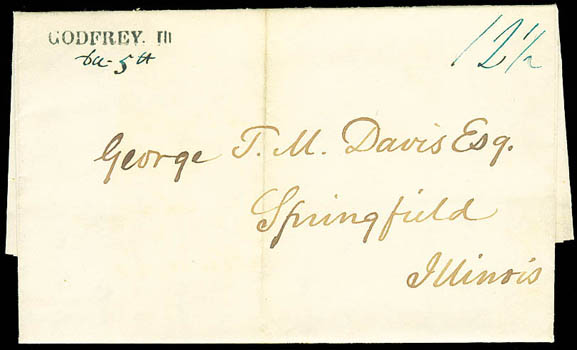 GODFREY. Ill
5th
12½
George T. M. Davis Esq.
Springfield
Illinois